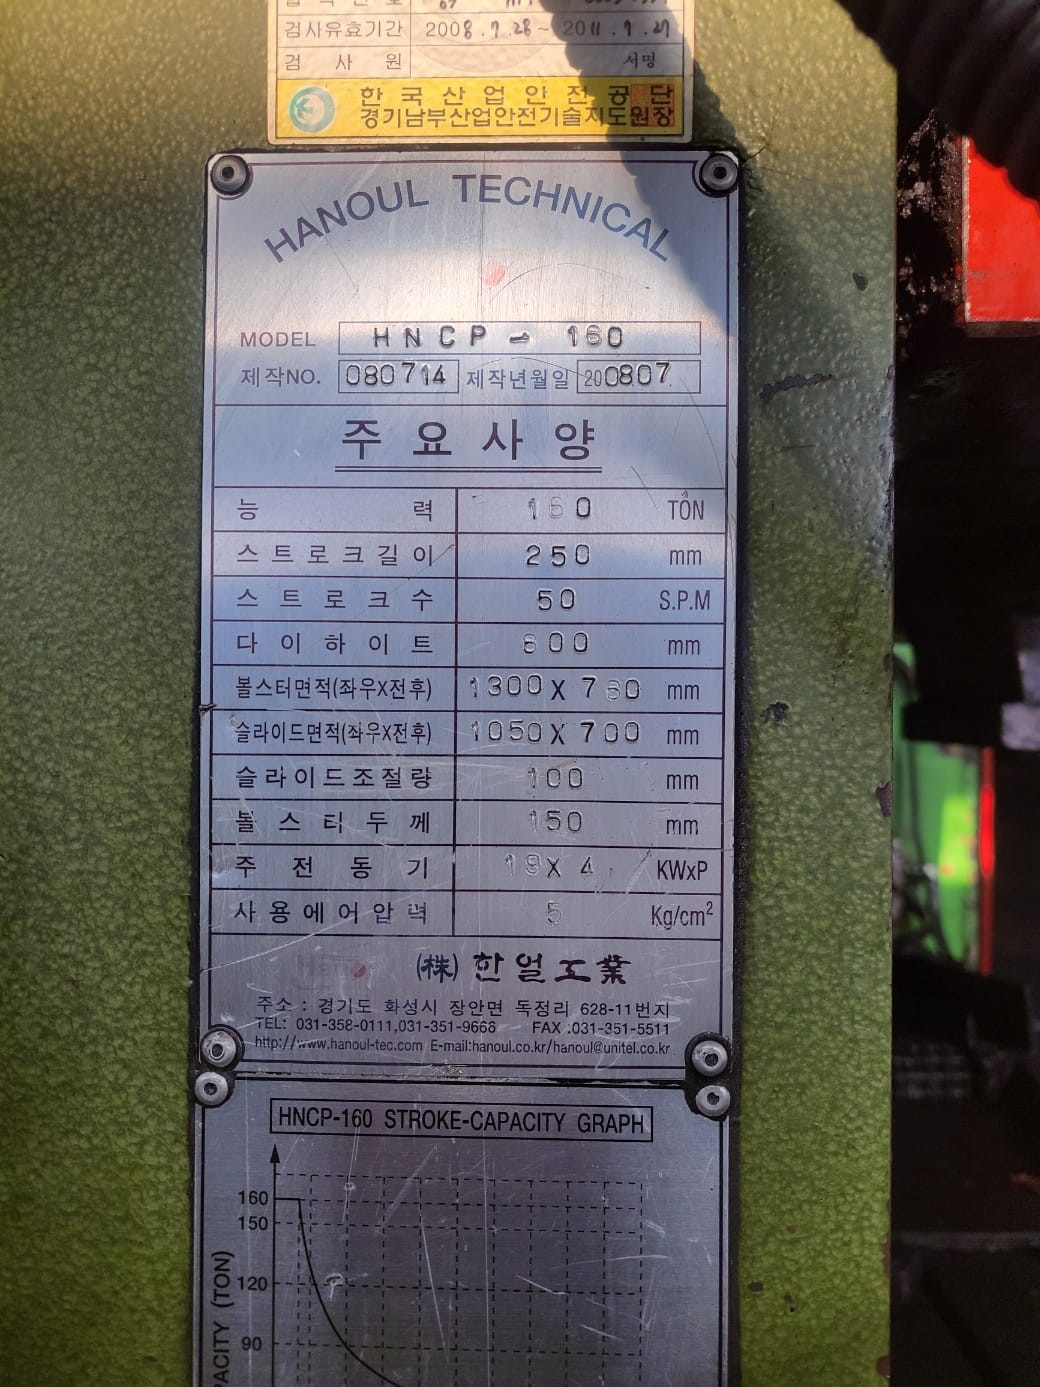 검사유효기간 2008.7.28~2011.7.27
검사원 서명
한국산업안전공단
경기남부산업안전기술지도원장
HANOUL TECHNICAL
MODEL HNCP-160
제작NO. 080714 제작년월일 200807
주요사양
능력 160 TON
스트로크길이 250 mm
스트로크수 50 S.P.M
다이하이트 mm
볼스터면적(좌우X전후) 1300 X 760 mm
슬라이드면적(좌우X전후) 1050 X 700 mm
슬라이드조절량 100 mm
볼스터두께 150 mm
주전동기 X 4 KWxP
사용에어압력 5 Kg/cm²
(株)한얼工業
주소 : 경기도 화성시 장안면 독정리 628-11번지
TEL: 031-358-0111,031-351-9668 FAX :031-351-5511
http://www.hanoul-tec.com E-mail:hanoul.co.kr/hanoul@unitel.co.kr
HNCP-160 STROKE-CAPACITY GRAPH
160
150
120
90
(TON)